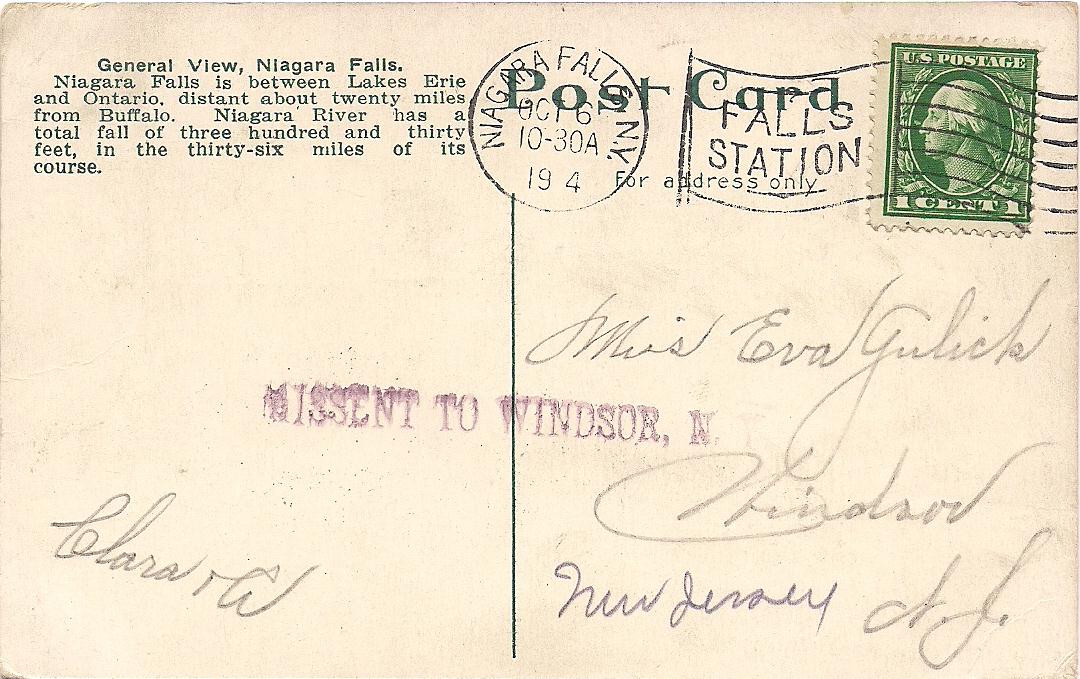 General View, Niagara Falls.
Niagara Falls is between Lakes Erie
and Ontario. distant about twenty miles
from Buffalo. Niagara River has a
total fall of three hundred and thirty
feet, in the thirty-six miles of its
course.
Post Card
For address only
NIAGARA FALLS, N.Y.
OCT 6
10-30A
19 4
FALLS
STATION
U.S. POSTAGE
1 CENT 1
Miss Eva Gulick
MISSENT TO WINDSOR, N.
Windsor
New Jersey N.J.
Clara